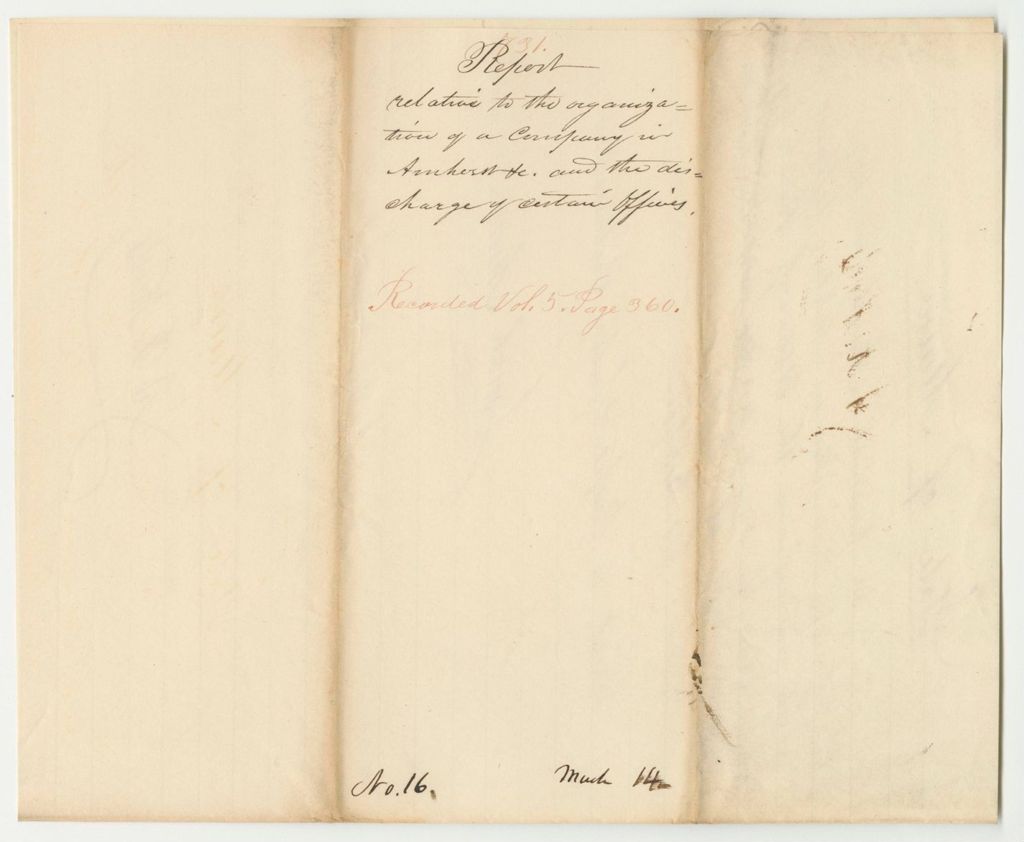 1831.
Report
relative to the organiza=
tion of a Company in
Amherst &c. and the dis=
charge of certain Officers.
Recorded Vol. 5. Page 360.
No. 16.
March 14